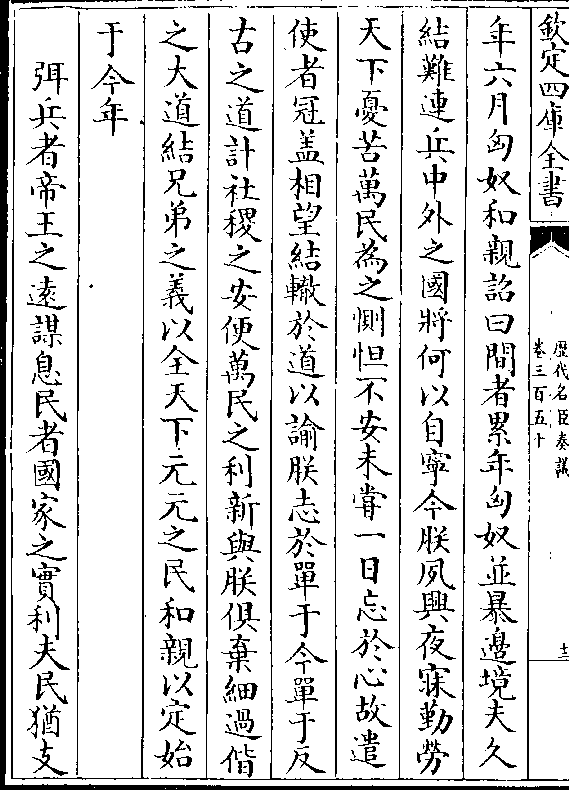 欽定四庫全書
歷代名臣奏議
卷三百五十
十二
年六月匈奴和親詔曰間者累年匈奴並暴邊境夫久
結難連兵中外之國將何以自寧今朕夙興夜寐勤勞
天下憂苦萬民為之惻怛不安未嘗一日忘於心故遣
使者冠盖相望結轍於道以諭朕志於單于今單于反
古之道計社稷之安便萬民之利新與朕俱棄細過偕
之大道結兄弟之義以全天下元元之民和親以定始
于今年
弭兵者帝王之逺謀息民者國家之實利夫民猶支